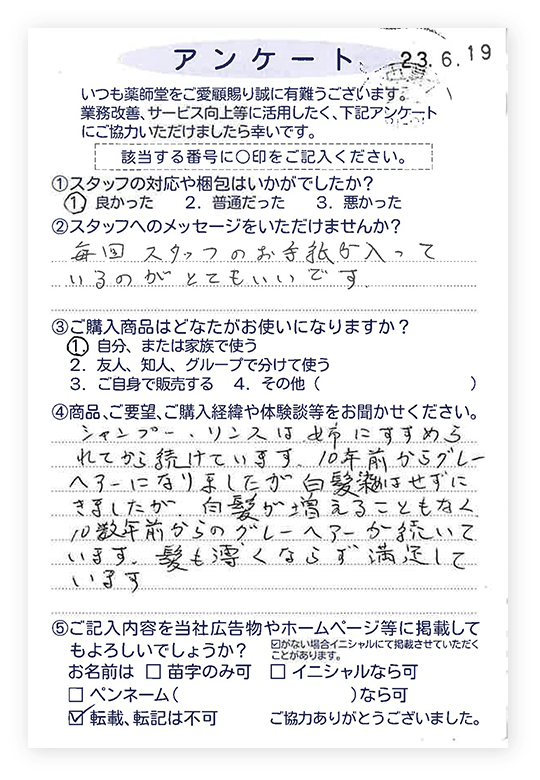 アンケート
23.6.19
いつも薬師堂をご愛顧賜り誠に有難うございます。
業務改善、サービス向上等に活用したく、下記アンケート
にご協力いただけましたら幸いです。
該当する番号に〇印をご記入ください。
①スタッフの対応や梱包はいかがでしたか？
1. 良かった 2. 普通だった 3. 悪かった
②スタッフへのメッセージをいただけませんか？
毎回 スタッフのお手紙が入って
いるのがとてもいいです.
③ご購入商品はどなたがお使いになりますか？
1. 自分、または家族で使う
2. 友人、知人、グループで分けて使う
3. ご自身で販売する 4. その他（ ）
④商品、ご要望、ご購入経緯や体験談等をお聞かせください。
シャンプー・リンスは姉にすすめら
れてから続けています. 10年前からグレー
ヘアーになりましたが白髪染めはせずに
きましたが 白髪が増えることもなく
10数年前からのグレーヘアーが続いて
います. 髪も薄くならず満足して
います
⑤ご記入内容を当社広告物やホームページ等に掲載して
もよろしいでしょうか？ ☑がない場合イニシャルにて掲載させていただく
ことがあります。
お名前は □ 苗字のみ可 □ イニシャルなら可
□ ペンネーム（ ）なら可
☑ 転載、転記は不可 ご協力ありがとうございました。